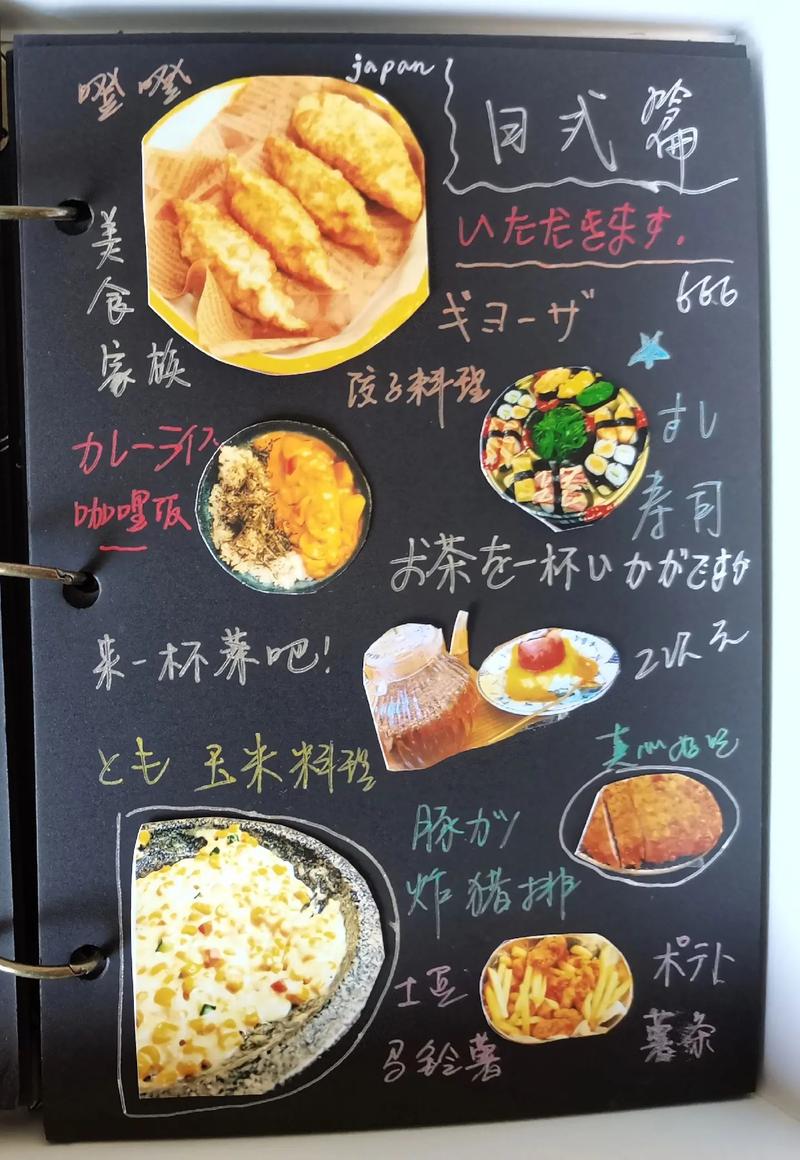 噔噔
japan
日式篇
いただきます。
666
美
食
家族
ギョーザ
饺子料理
カレーライス
咖哩饭
すし
寿司
お茶を一杯いかがですか
来一杯茶吧!
2次元
とも 玉米料理
真心好吃
豚ガツ
炸猪排
土豆
马铃薯
ポテト
薯条